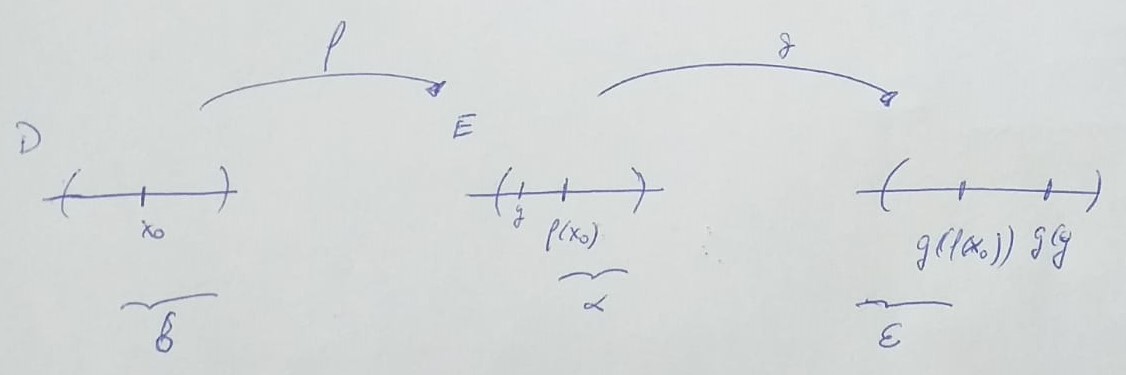 f g
D E
x₀ y f(x₀) g(f(x₀)) g(y
δ α ε